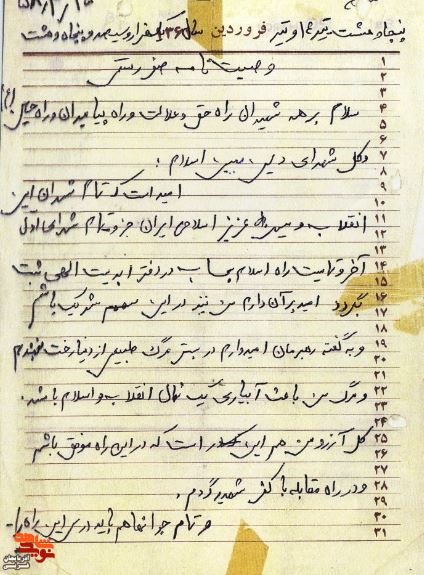 ۵۸/۳/۱۵
پنجاه و هشت تیر ۱۶ و تیر فروردین سال ۱۳۶ یکهزار و سیصد و پنجاه و هشت
وصیت نامه
سلام بر همه شهیدان راه حق و عدالت و راه پیامبران و راه حسین (ع)
و کل شهدای دین مبین اسلام:
امید است که تمام شهدای این
انقلاب و میهن عزیز اسلامی ایران جزو تمام شهدای اول
آخر و تمامیت راه اسلام بحساب در دفتر ابدیت الهی ثبت
بگردد امید بر آن دارم من نیز در این مهم شریک باشم
و به گفته رهبرمان امیدوارم در بستر مرگ طبیعی از دنیا رخت نبندم
و مرگ من باعث آبیاری یک نهال انقلاب و اسلام باشد.
کل آرزو من هم این است که در این راه موفق باشم
و در راه مقابله با کفر شهید گردم.
و تمام جوانها هم باید در این راه را-
۱
۲
۳
۴
۵
۶
۷
۸
۹
۱۰
۱۱
۱۲
۱۳
۱۴
۱۵
۱۶
۱۷
۱۸
۱۹
۲۰
۲۱
۲۲
۲۳
۲۴
۲۵
۲۶
۲۷
۲۸
۲۹
۳۰
۳۱
نوید شاهد
آذربایجان شرقی